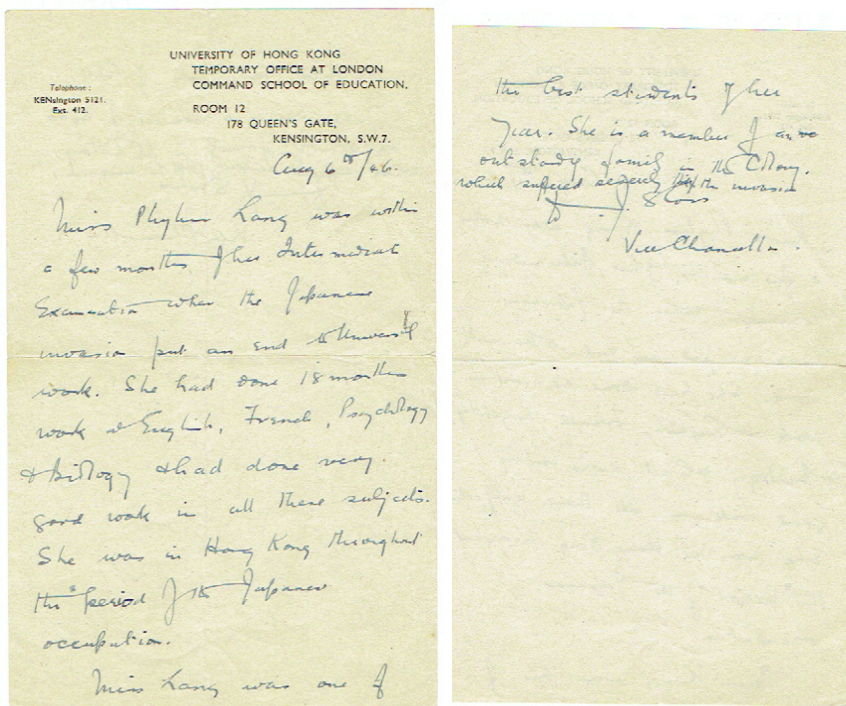 UNIVERSITY OF HONG KONG
TEMPORARY OFFICE AT LONDON
COMMAND SCHOOL OF EDUCATION,
Telephone :
KENsington 5121.
Ext. 412.
ROOM 12
178 QUEEN'S GATE,
KENSINGTON, S.W.7.
Aug 6th/46.
Miss Lang was within
a few months of her Intermediate
Examination when the Japanese
invasion put an end to University
work. She had done 18 months
work in English, French, Psychology
& Biology & had done very
good work in all these subjects.
She was in Hong Kong throughout
the period of the Japanese
occupation.
Miss Lang was one of
the best students of her
year. She is a member of an
outstanding family in the Colony,
which suffered severely the invasion
Sloss
Vice Chancellor.